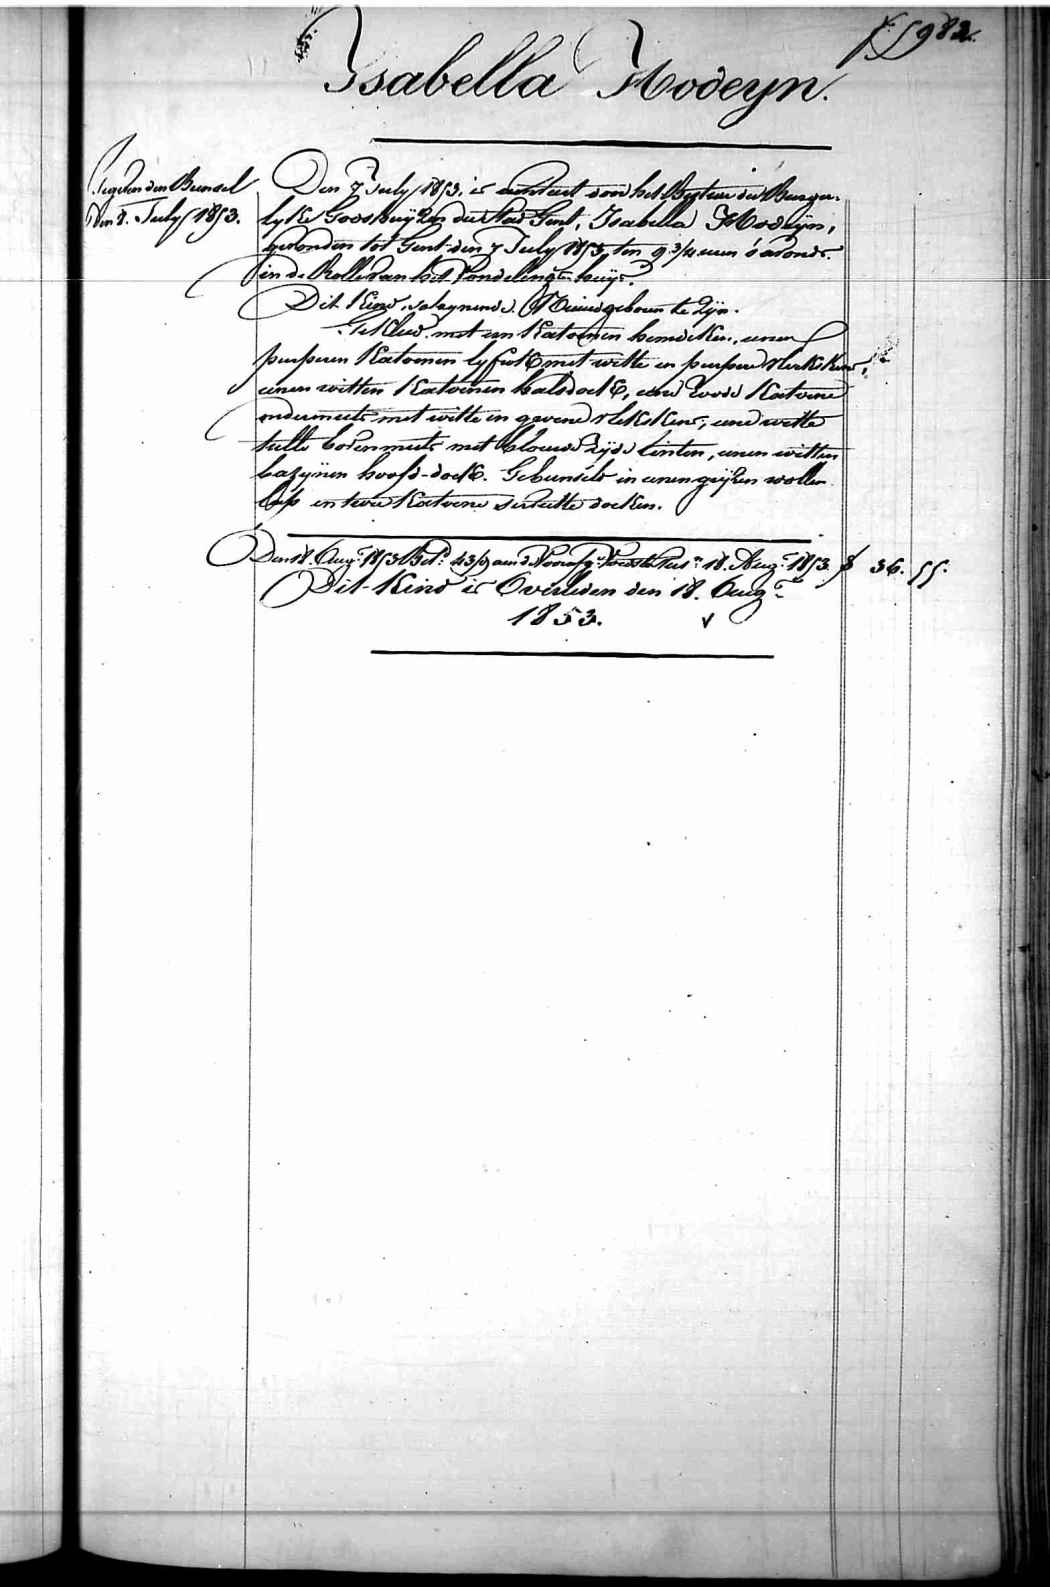 f° 982.
Isabella Hodeyn.
Gegeven den Bunsel
den 8. July 1853.
Den 7 July 1853. is door het Bestuer der Burger-
lyke Godshuyzen der Stad Gent, Isabella Hodeyn,
gevonden tot Gent den 7 July 1853, ten 9 3/4 uren s'avonds
in de Rolle van het Vondelingen huys.
Dit Kind schynende Nieuwgeboren te zyn.
Gekleed met een Katoenen hemdeken, eenen
purperen Katoenen lyfrok met witte en purpere vlekskens,
eenen witten Katoenen halsdoek, eene roode Katoene
ondermuts met witte en geevene vlekskens, eene witte
tulle bovenmuts met blauwe zyde linten, eenen witten
bazynen hoofd-doek. Gebunseld in eenen gryzen wollen
lap en twee Katoene servette doeken.
Den 18. Augt 1853 Bet. 43/ aen d 18. Augt 1853. f 36. 55.
Dit Kind is Overleden den 18. Augt
1853.